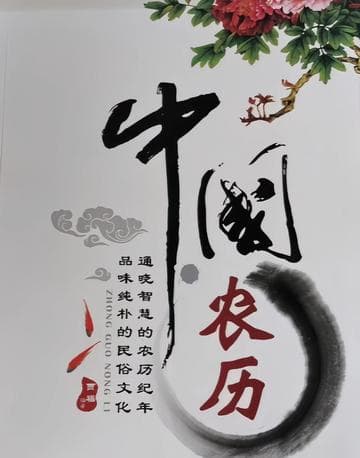 中国
农历
通晓智慧的农历纪年
品味纯朴的民俗文化
ZHONG GUO NONG LI